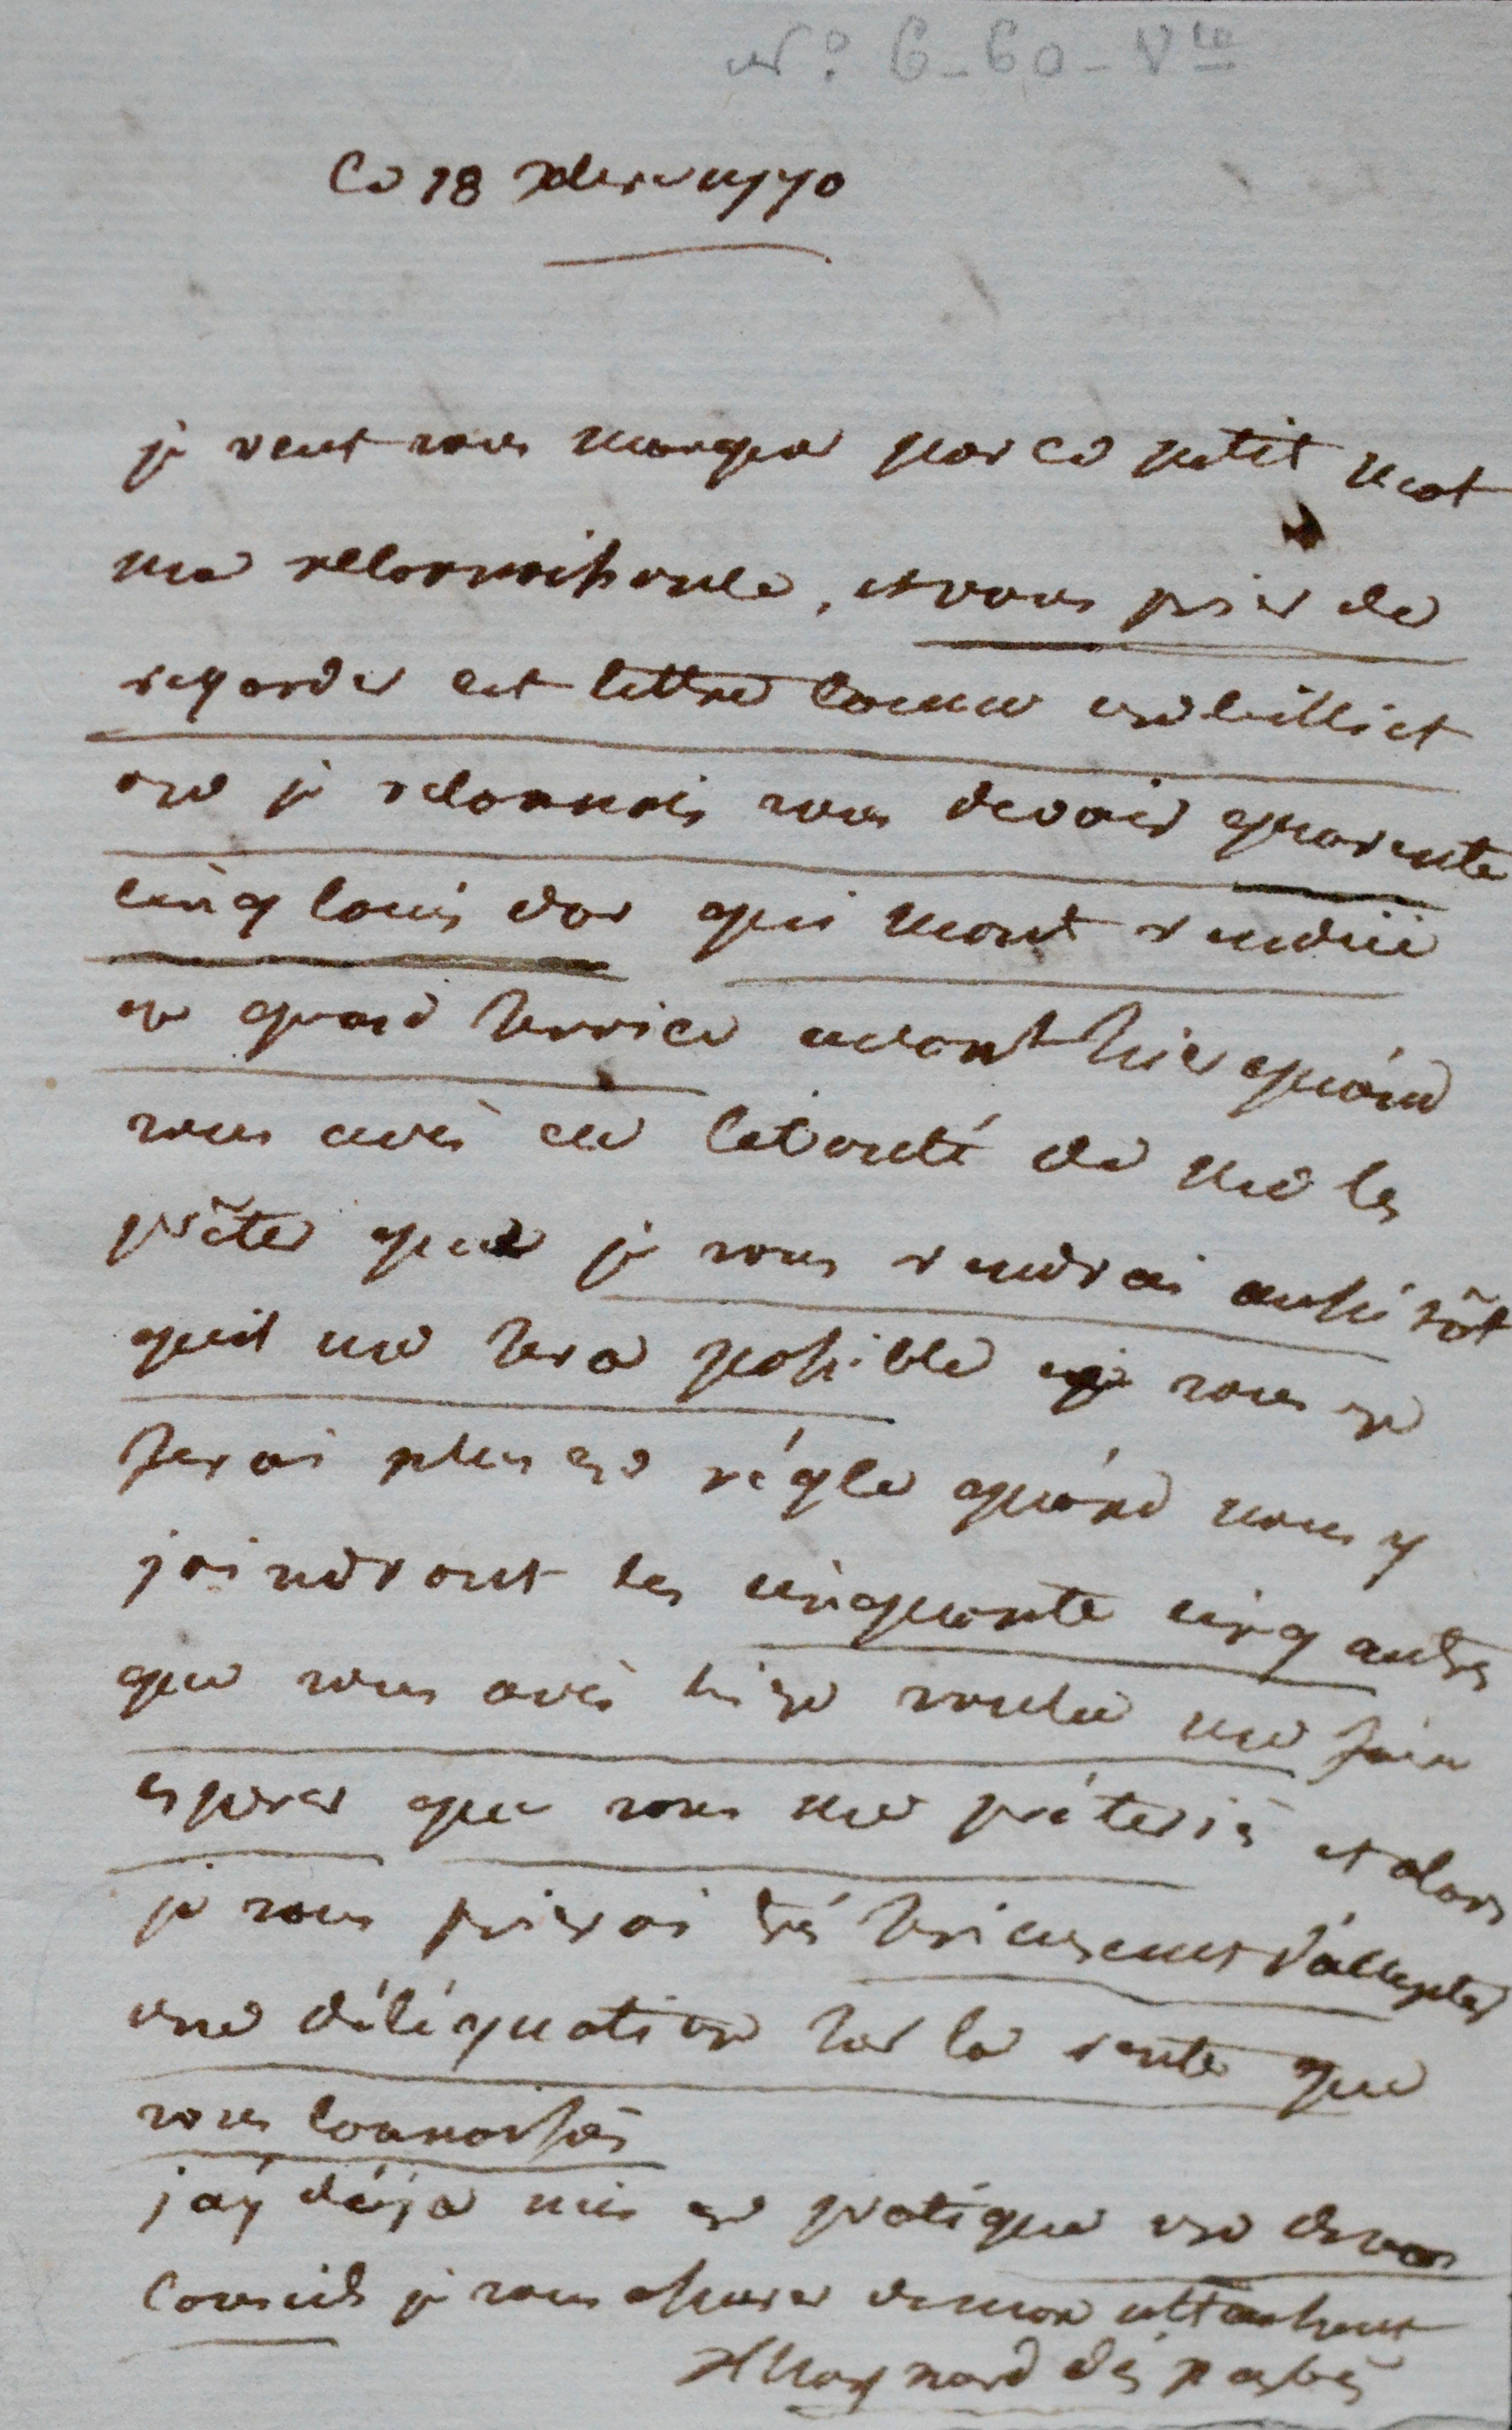 N.º 6-60-Vte
Ce 18 xbre 1770
je veut vous marquer par ce petit mot
ma reconnoissance, et vous prier de
regarder cet lettre comme un billiet
ou je reconnois vous devoir quarente
cinq louis dor qui mont rendüe
un grand service avant hier quánd
vous avés eu la bonté de me les
prêter que je vous rendrai aussi tôt
quil me sera possible je vous en
ferai plus en régle quánd nous y
joindront les cinquante cinq autres
que vous avés bien voulu me faire
esperer que vous me préteriés et alors
je vous prierai trés serieusement d'accepter
une déléguation sur la rente que
vous connoissés
jáy déja mis en pratique un de vos
conseils je vous assure de mon attachement
Maynard dés